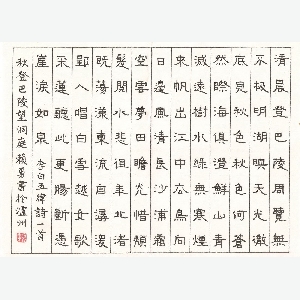 清晨登巴陵周覽無
不極明湖映天光徹
底見秋色秋色何蒼
然際海俱澄鮮山青
滅遠樹水綠無寒煙
來帆出江中去鳥向
日邊風清長沙浦霜
空雲夢田瞻光惜頹
髮閱水悲徂年北渚
既蕩漾東流自潺湲
郢人唱白雪越女歌
采蓮聽此更腸斷憑
崖淚如泉 李白五律詩一首
秋登巴陵望洞庭 賴書於瀘州